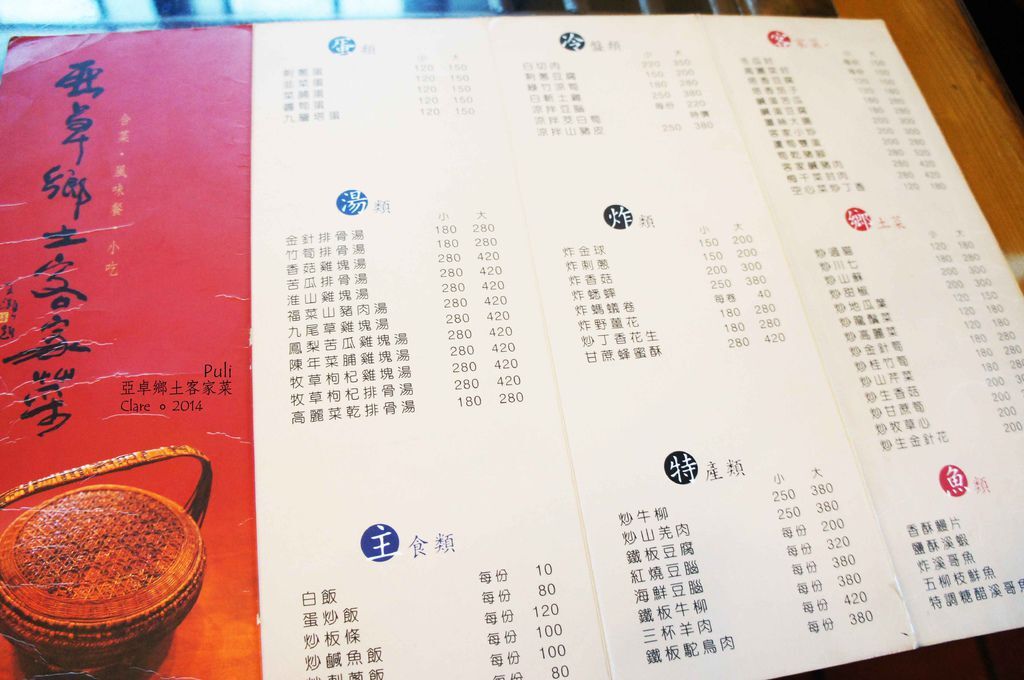 亞卓鄉土客家菜
合菜・風味餐・小吃
Puli
亞卓鄉土客家菜
Clare 。2014
蛋類
小 大
刺蔥蛋 120 150
韭菜蛋 120 150
菜脯蛋 120 150
蘿蔔蛋 120 150
九層塔蛋 120 150
湯類
小 大
金針排骨湯 180 280
竹筍排骨湯 180 280
香菇雞塊湯 280 420
苦瓜排骨湯 180 280
淮山雞塊湯 280 420
福菜山豬肉湯 280 420
九尾草雞塊湯 280 420
鳳梨苦瓜雞塊湯 280 420
陳年菜脯雞塊湯 280 420
牧草枸杞雞塊湯 280 420
牧草枸杞排骨湯 280 420
高麗菜乾排骨湯 180 280
主食類
白飯 每份 10
蛋炒飯 每份 80
炒板條 每份 120
炒鹹魚飯 每份 100
炒刺蔥飯 每份 100
80
冷盤類
小 大
白切肉 220 350
刺蔥豆腐 150 200
綠竹涼筍 180 280
白斬土雞 250 380
涼拌豆腦 每份 220
涼拌茭白筍 特價
涼拌山豬皮 250 380
炸類
小 大
炸金球 150 200
炸刺蔥 150 200
炸香菇 200 300
炸蟋蟀 250 380
炸螞蟻卷 每卷 40
炸野薑花 180 280
炒丁香花生 180 280
甘蔗蜂蜜酥 280 420
特產類
小 大
炒牛柳 250 380
炒山羌肉 250 380
鐵板豆腐 每份 200
紅燒豆腦 每份 320
海鮮豆腦 每份 380
鐵板牛柳 每份 380
三杯羊肉 每份 420
鐵板鴕鳥肉 每份 380
客家菜
小 大
客家小炒 200 300
客家鹹豬肉
梅干菜封肉 280 420
空心菜炒丁香 120 180
鄉土菜
小 大
炒過貓 120 180
炒川七 180 280
炒山蘇 200 300
炒甜椒
炒地瓜葉 120 150
炒龍鬚菜
炒高麗菜
炒金針筍
炒桂竹筍
炒山芹菜
炒生香菇
炒甘蔗筍
炒牧草心
炒生金針花 200
魚類
香酥鰻片
鹽酥溪蝦
炸溪哥魚
五柳枝鮮魚
特調糖醋溪哥魚